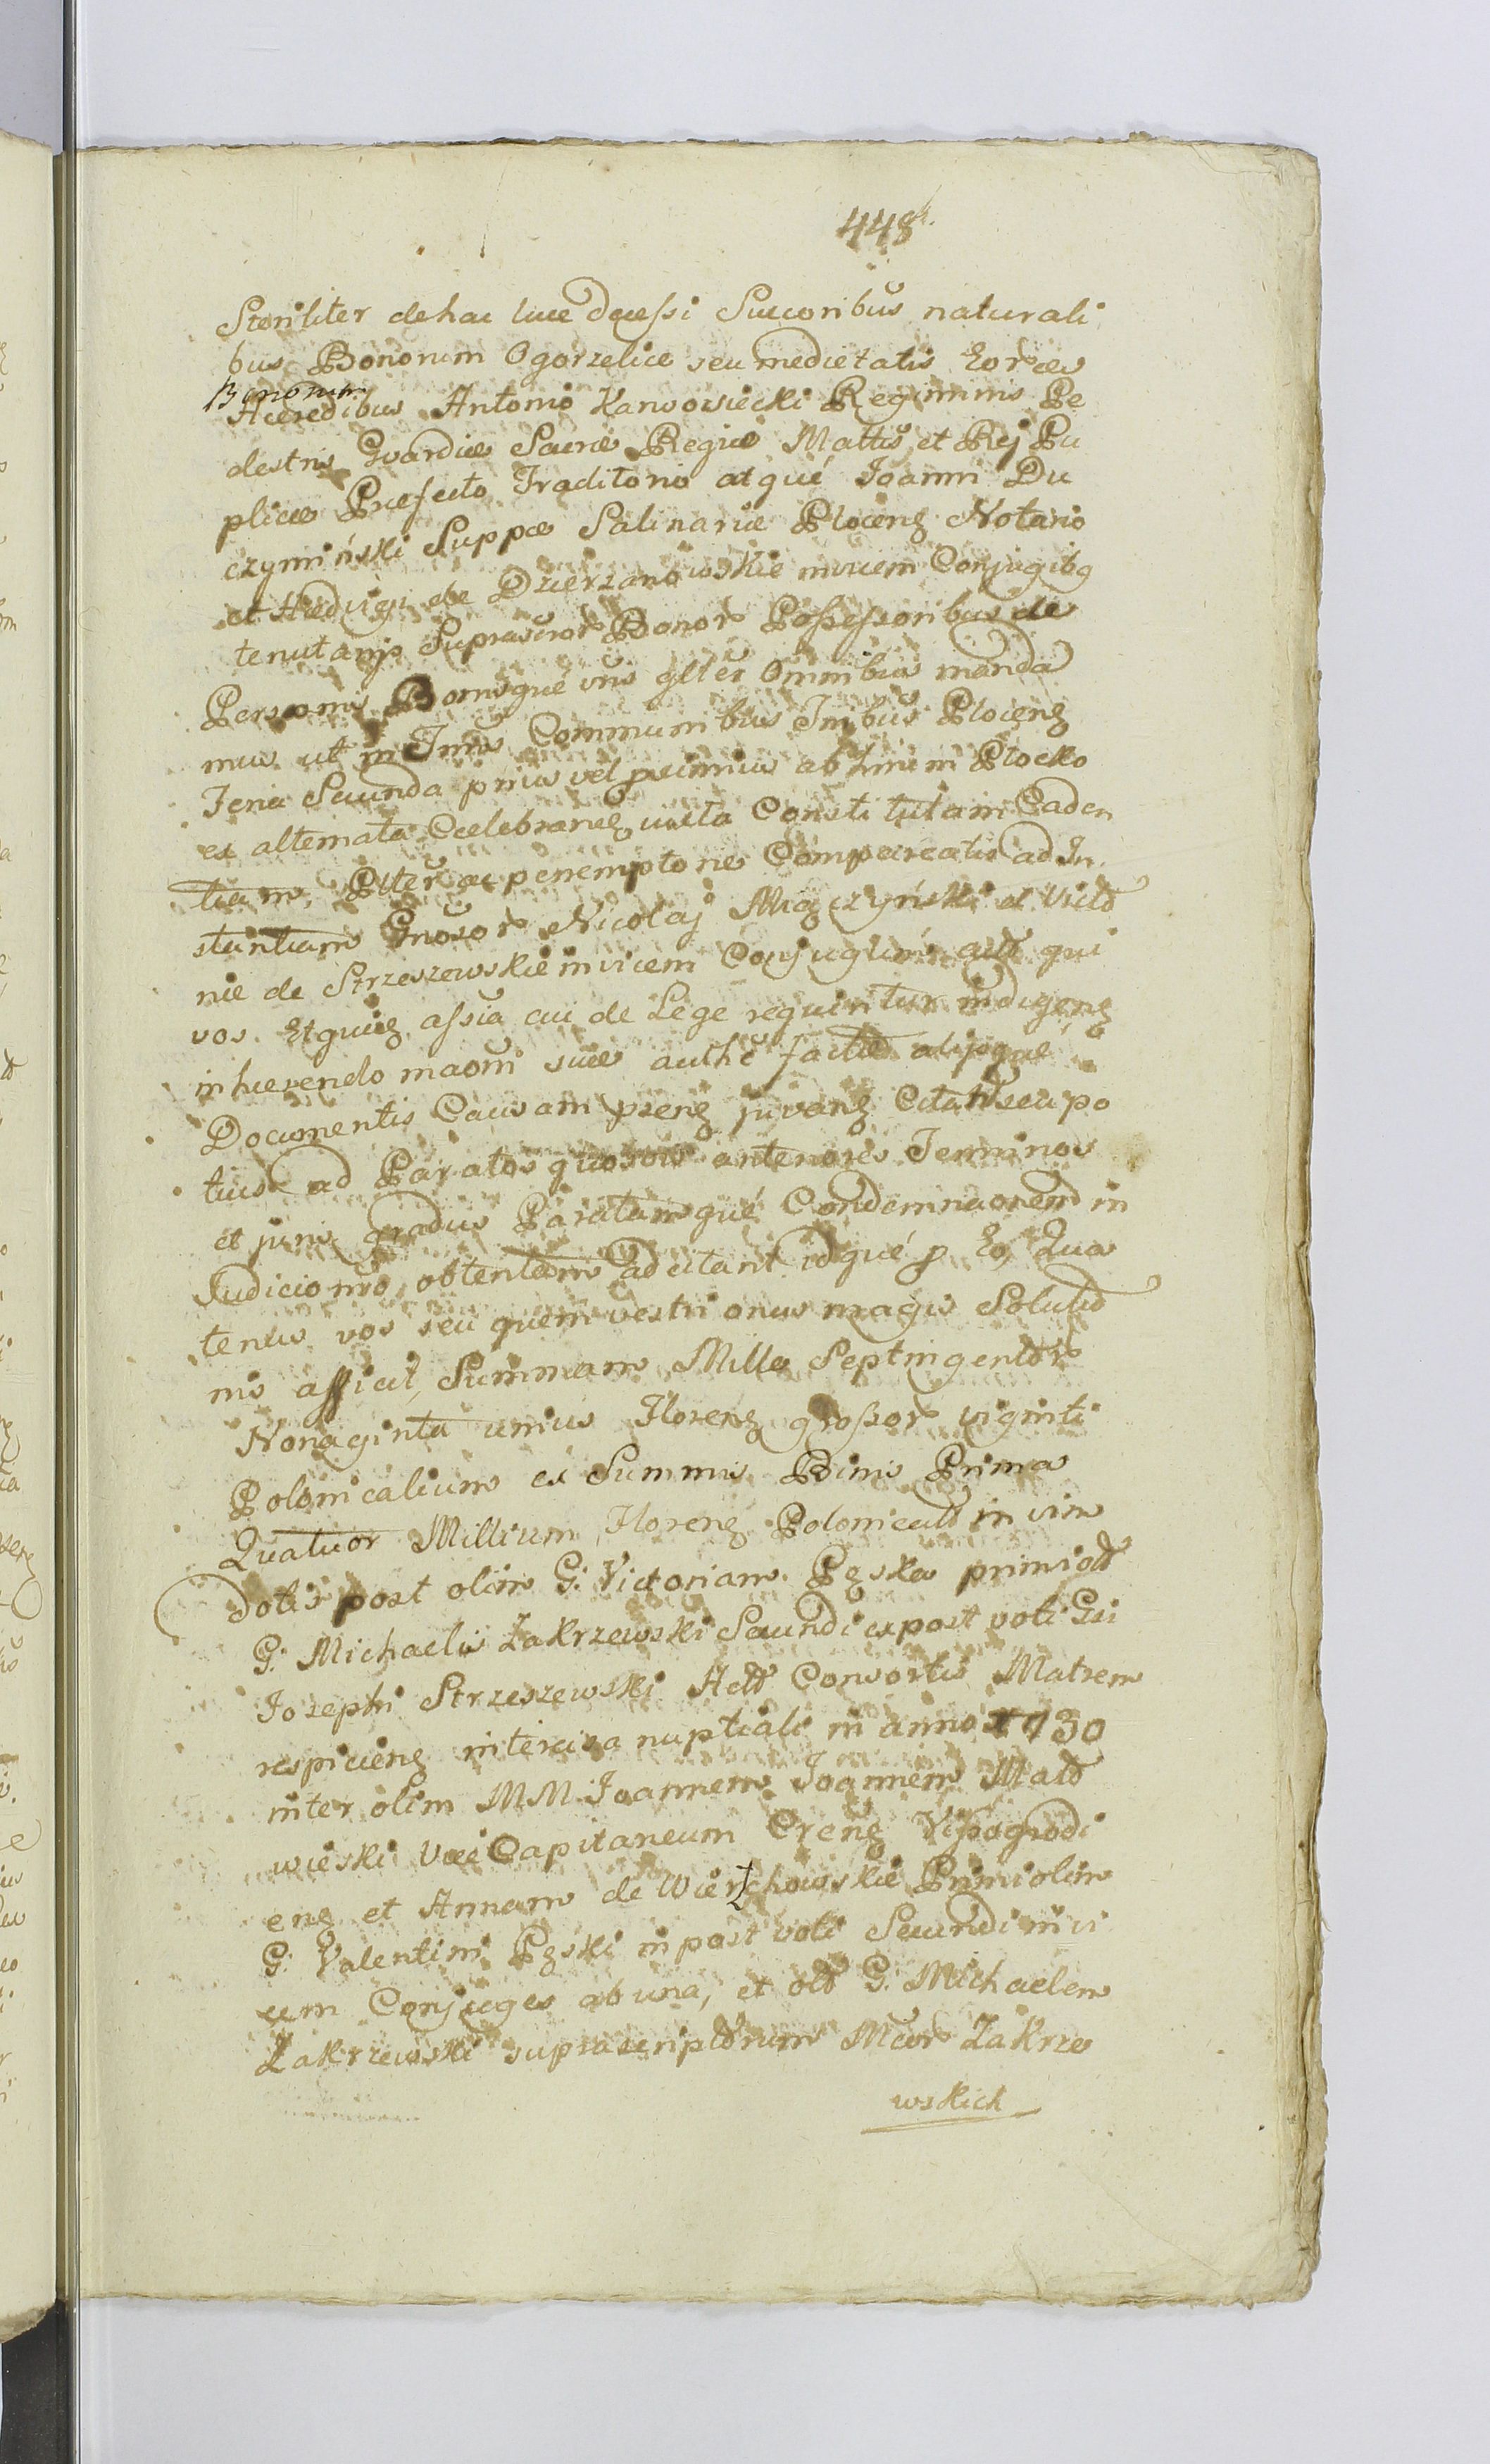 448
Steriliter de hac luce decessi Succoribus naturali
bus Bonorum Ogorzelice seu medietatis Eordem
Bonorum
Haeredibus Antonio Karwosiecki Regiminis Pe
destris Gvardiae Sacrae Regiae Mattis et Rej Pu
plicae Praefecto Traditorio atqué Joanni Du
czymiński Suppae Salinariae Plocen Notario
et Hedvigi de Dzierzanowskie invicem Conjugibq
tenutarijs Suprascror Bonor Possessoribus de
Personis Bonisqué vris glter Omnibus manda
mus ut in Tmis Communibus Tribus Plocen
Feria Secunda prius vel proximius abhinc in Plocko
ex alternata Caelebranen iuxta Constitutam Caden
tiam, Plter ac peremptorie Compareatis ad In
stantiam Gnosor Nicolaj Mączyński et Victo
riae de Strzeszewskie invicem Conjugum act qui
vos. Et quien assia cui de Lege requiritur indigen
inhaerendo maoni suae authe factae alijsqué
Documentis Causam pren juvan Citant seu po
tius ad Paratos quosvis anteriores Terminos
et juris gradus Paratamqué Condemnaonem in
Judicio nro obtentam adcitant idqué p Eo, Qua
tenus vos seu quem vestri onus magis Solutio
nis afficit, Summam Mille Septingentor
Nonaginta unius Floren grossor viginti
Polonicalium ex Summis Binis Prima
Quatuor Millium Floren Polonical in vim
dotis post olim G. Victoriam Pęska primi olt
G. Michaelis Zakrzewski Secundi expost voti Gsi
Josephi Strzeszewski Actt Consortis Matrem
respicien intercisa nuptiali in anno 1730
inter olim MM. Joannem Joannem Mało
wieski Vice Capitaneum Cren Vissogrodi
en et Annam de Wierzchowskie Primi olim
G. Valentini Pęski inpost voti Secundi invi
cem Conjuges ab una, et olt G. Michaelem
Zakrzewski suprascriptorum Mcor Zakrze
wskich